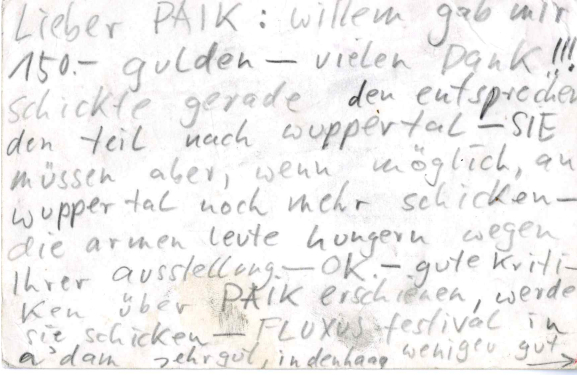 Lieber PAIK: willem gab mir
150.- gulden — vielen Dank!!!
schickte gerade den entsprechen
den teil nach wuppertal — SIE
müssen aber, wenn möglich, an
wuppertal noch mehr schicken —
die armen leute hungern wegen
Ihrer ausstellung. — OK. — gute Kriti-
ken über PAIK erschienen, werde
sie schicken — FLUXUS festival in
a'dam sehr gut, in denhaag weniger gut →